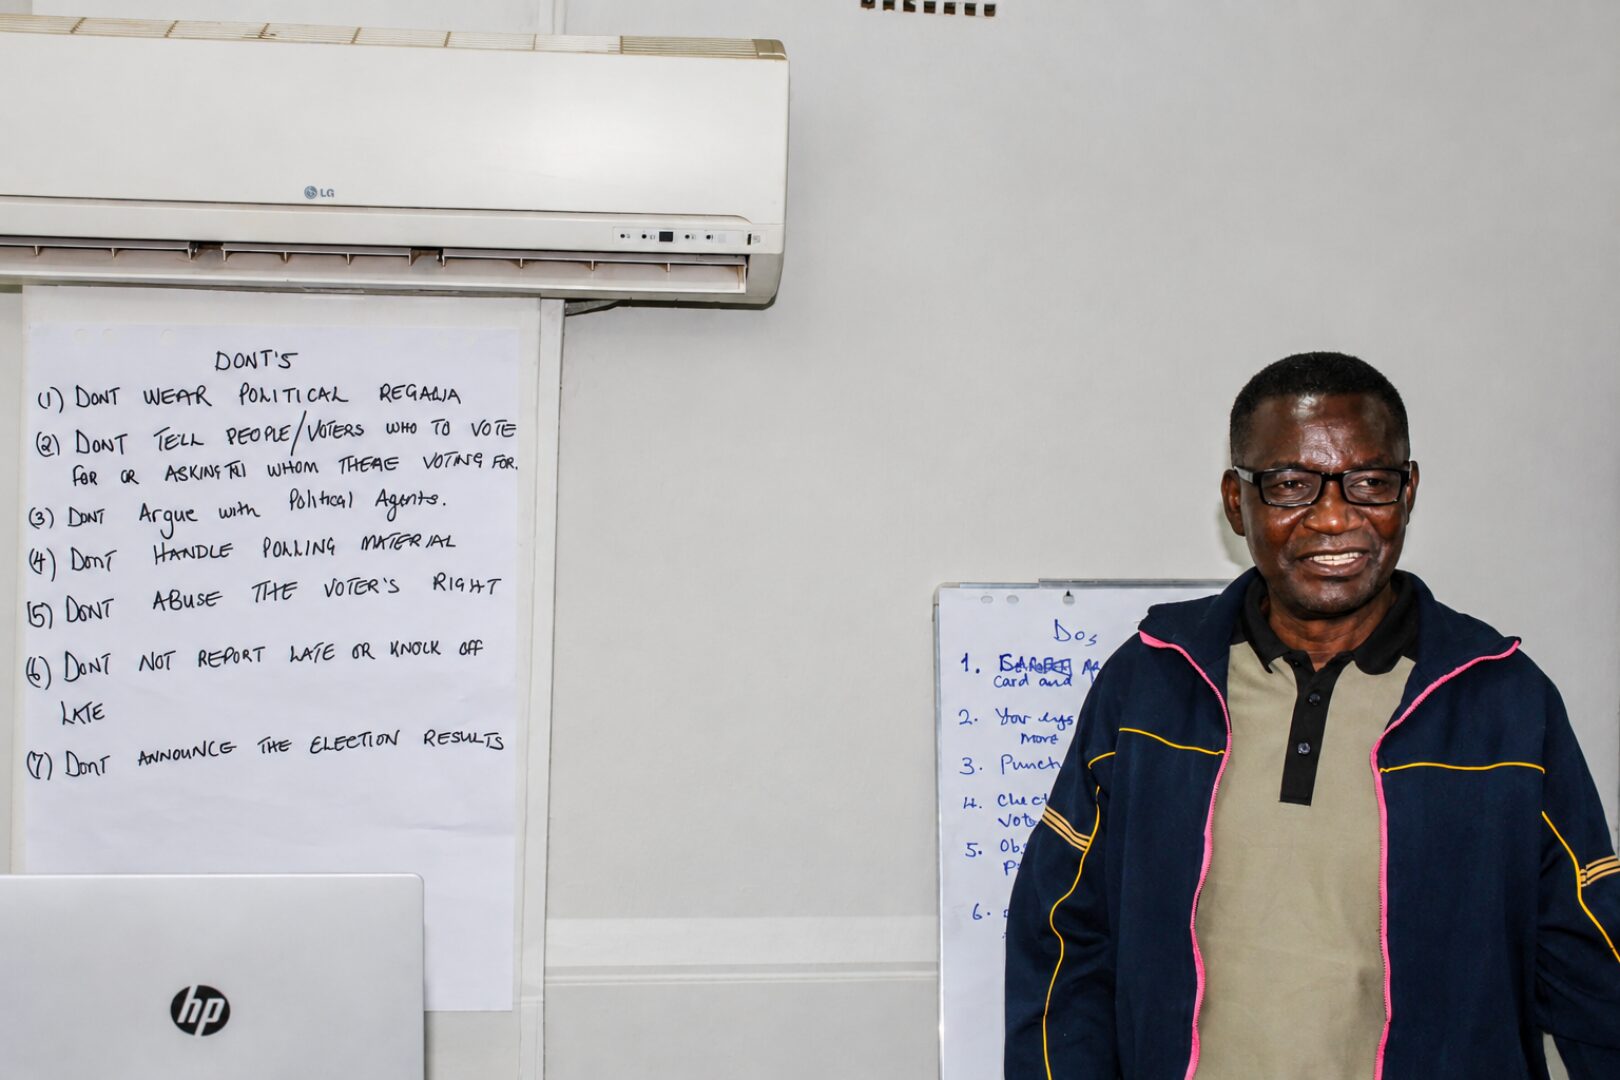 LG
DONT'S
(1) DONT WEAR POLITICAL REGALIA
(2) DONT TELL PEOPLE/VOTERS WHO TO VOTE
FOR OR ASKING WHOM THERE VOTING FOR.
(3) DONT Argue with Political Agents.
(4) DONT HANDLE POLLING MATERIAL
(5) DONT ABUSE THE VOTER'S RIGHT
(6) DONT NOT REPORT LATE OR KNOCK OFF
LATE
(7) DONT ANNOUNCE THE ELECTION RESULTS
hp
Dos
1.
card and
2. Your eyes
more
3. Punct
4. Check
Vote
5. Obs
P
6.